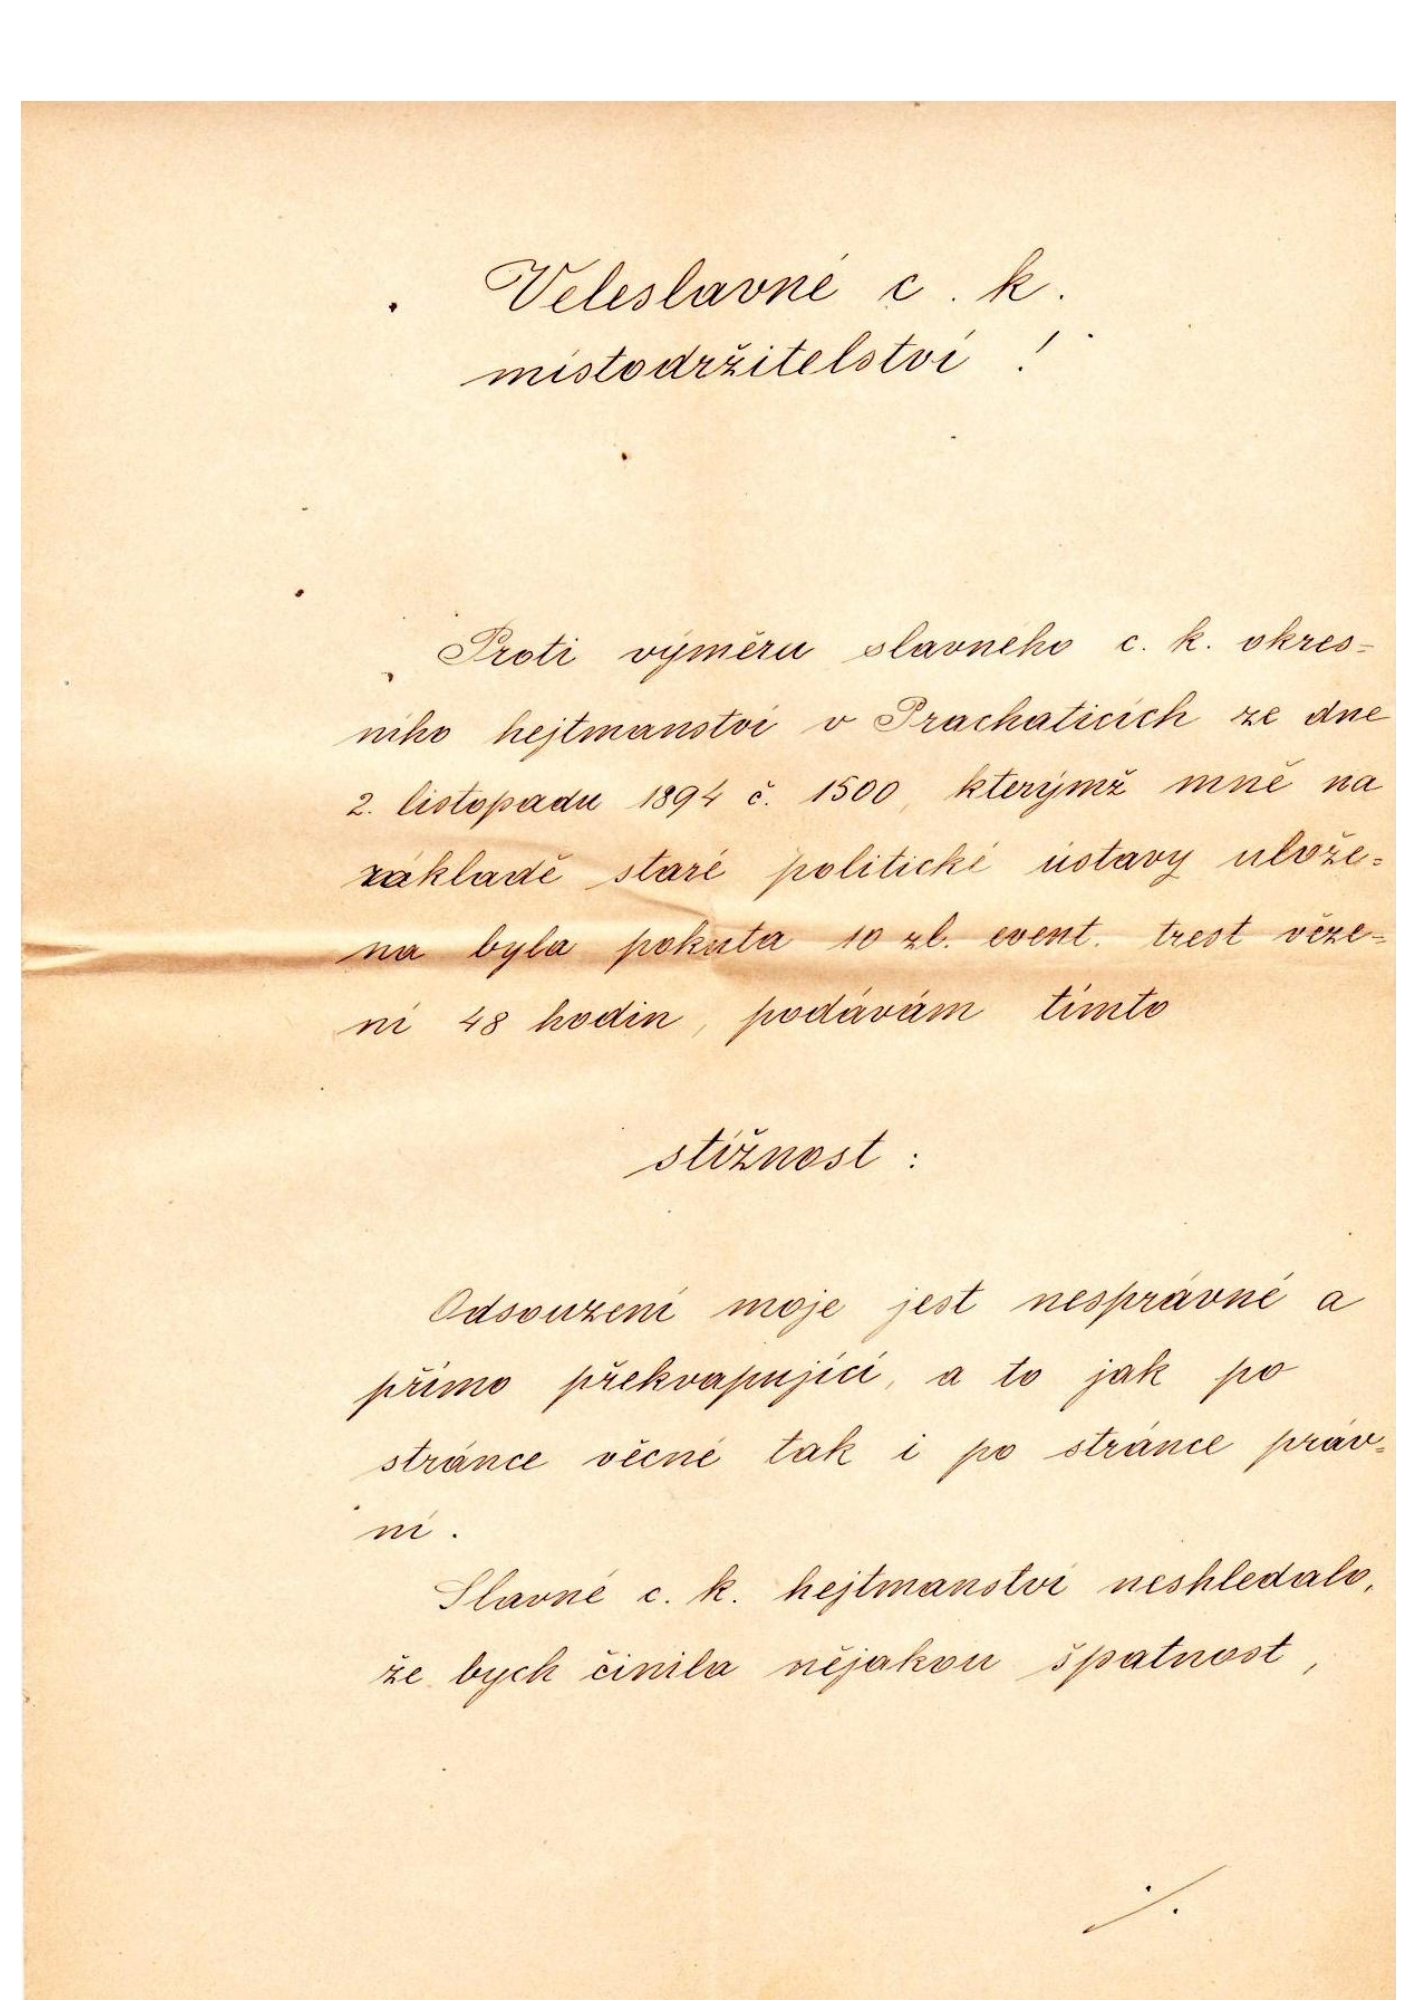 Veleslavné c. k.
místodržitelství !
Proti výměru slavného c. k. okres=
ního hejtmanství v Prachaticích ze dne
2. listopadu 1894 č. 1500, kterýmž mně na
základě staré politické ústavy ulože=
na byla pokuta 10 zl. event. trest věze=
ní 48 hodin, podávám tímto
stížnost :
Odsouzení moje jest nesprávné a
přímo překvapující, a to jak po
stránce věcné tak i po stránce práv=
ní.
Slavné c. k. hejtmanství neshledalo,
že bych činila nějakou špatnost,
./.